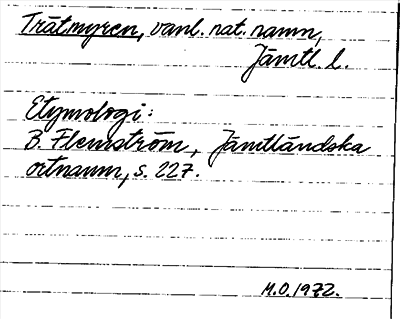 Trätmyren, vanl. nat. namn,
Jämtl. l.
Etymologi:
B. Flemström, Jämtländska
ortnamn, s. 227.
M.O. 1972.